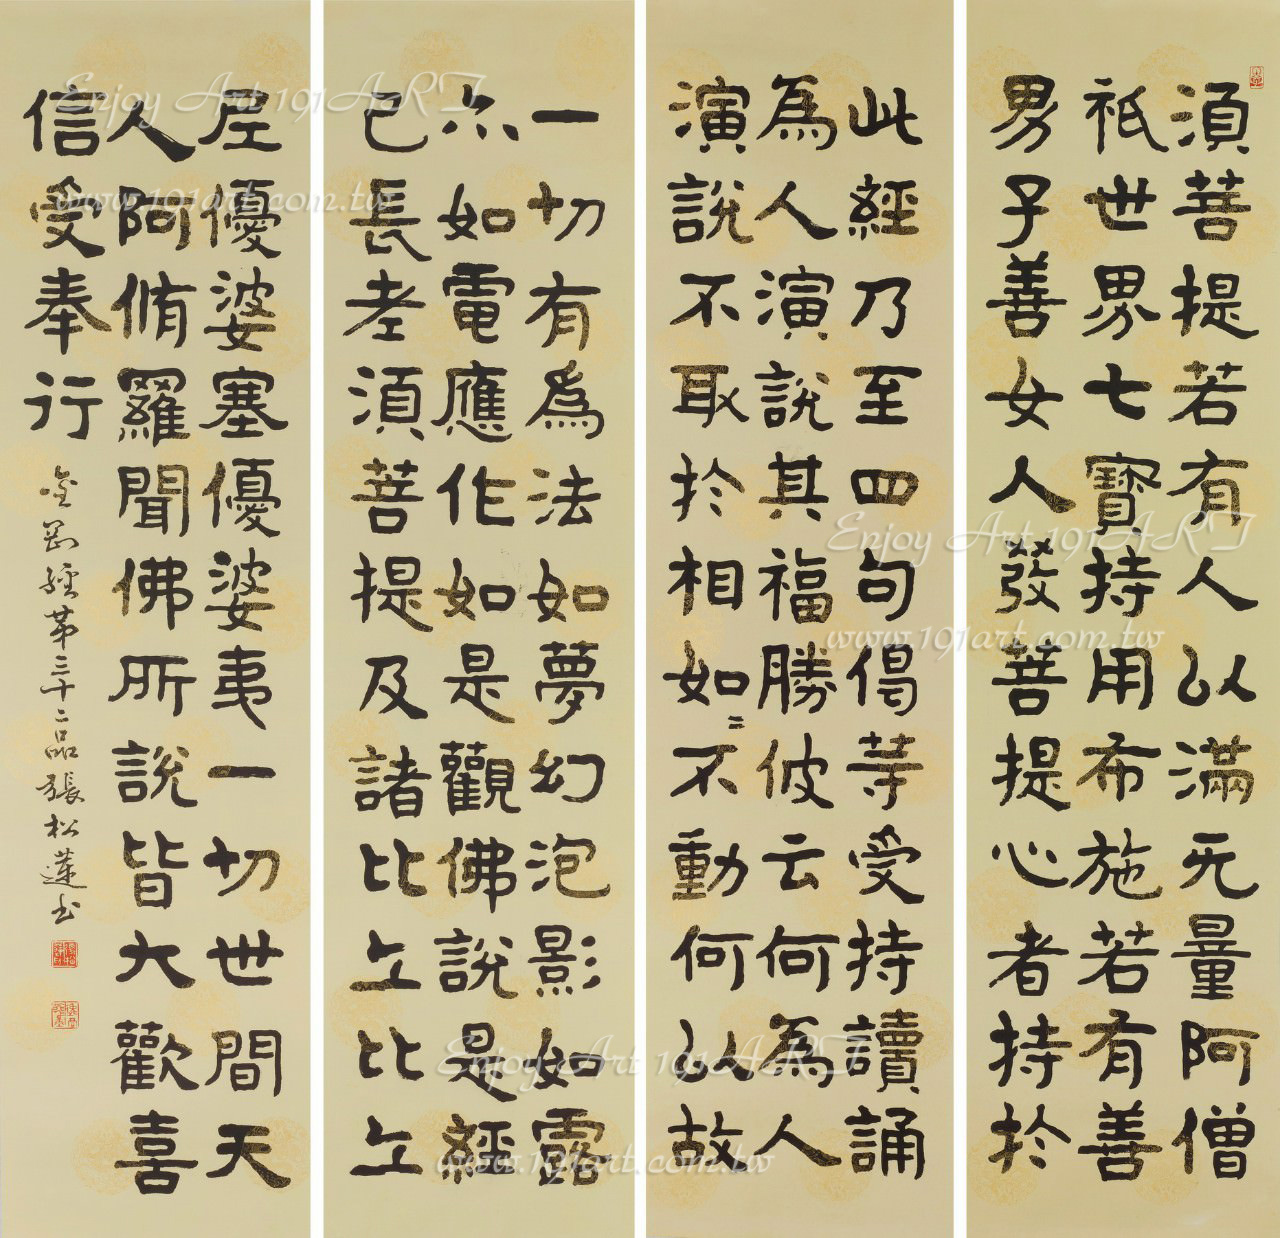 須菩提若有人以滿无量阿僧
祇世界七寶持用布施若有善
男子善女人發菩提心者持於
此經乃至四句偈等受持讀誦
為人演說其福勝彼云何為人
演說不取於相如〻不動何以故
一切有為法如夢幻泡影如露
亦如電應作如是觀佛說是經
已長老須菩提及諸比丘比丘
尼優婆塞優婆夷一切世間天
人阿脩羅聞佛所說皆大歡喜
信受奉行
金剛經第三十二品張松蓮書
Enjoy Art 191ART
www.191art.com.tw
Enjoy Art 191ART
www.191art.com.tw
Enjoy Art 191ART
www.191art.com.tw